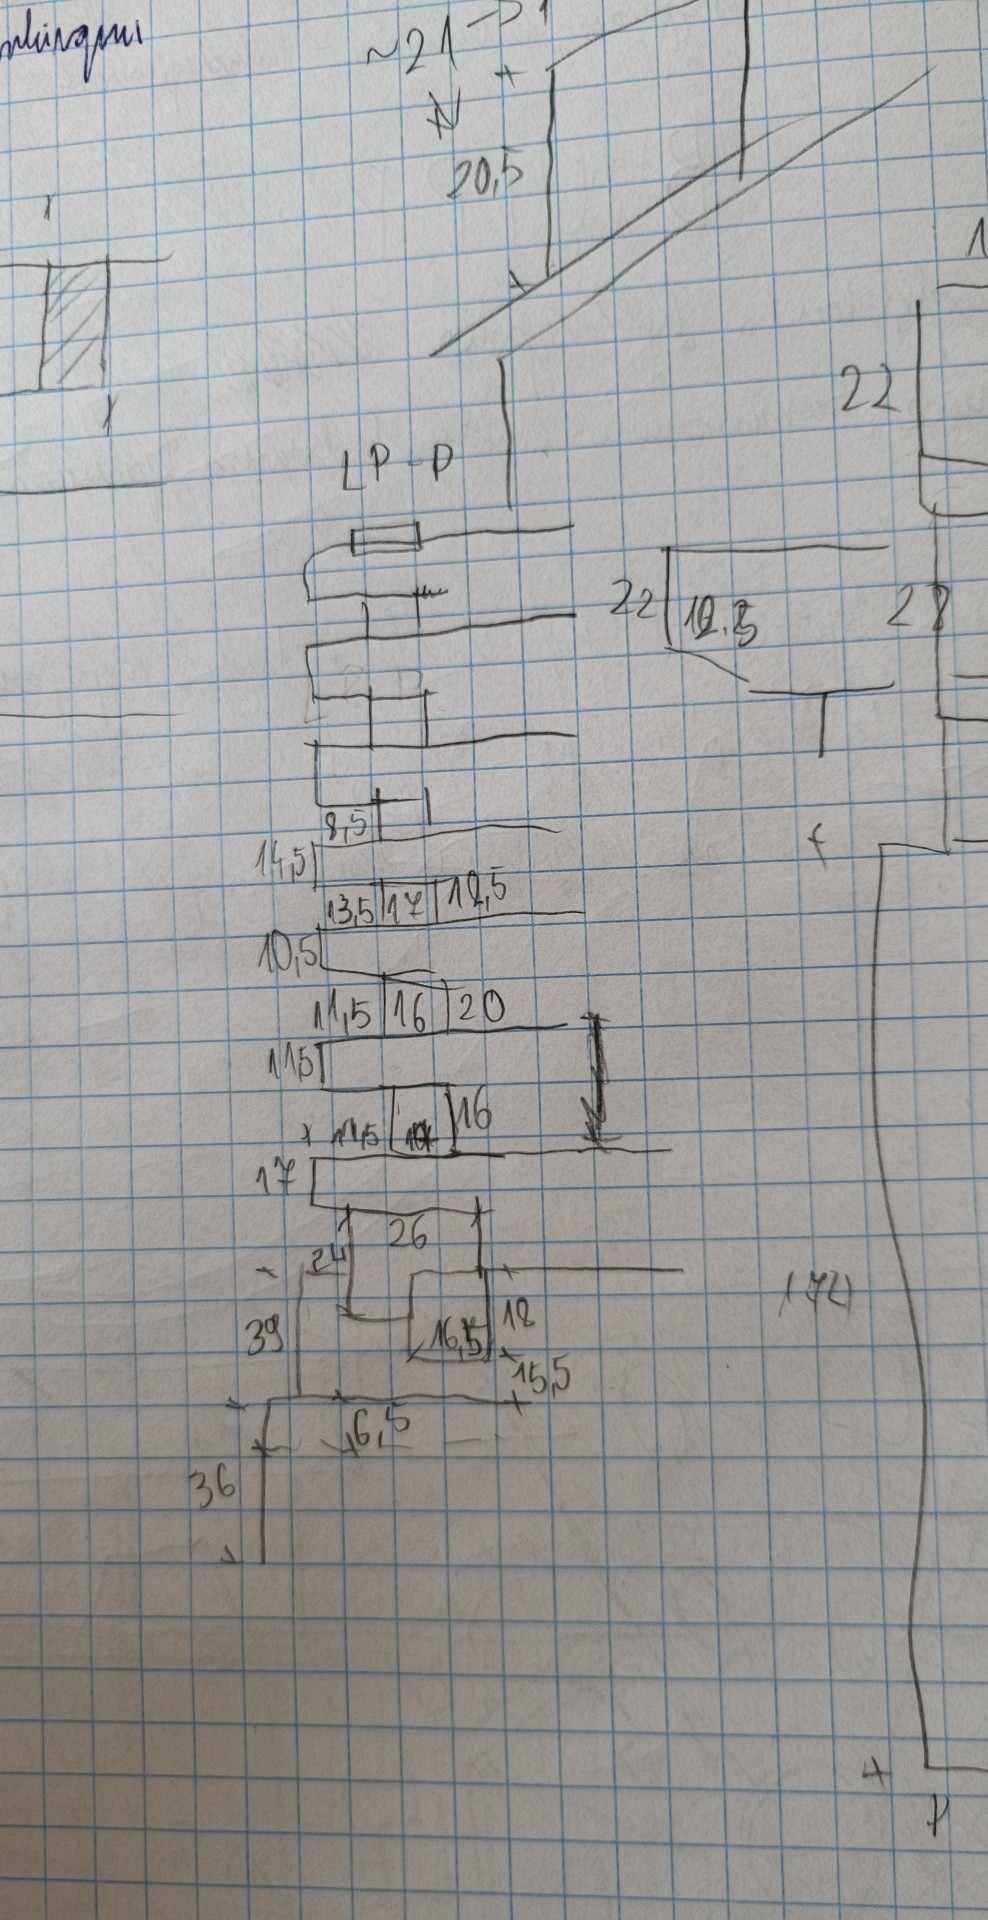 ~21
20,5
22
LP-P
22
28
8,5
14,5
13,5 17 12,5
10,5
11,5 16 20
11,5
16
17
26
24
39
18
16,5
15,5
6,5
36